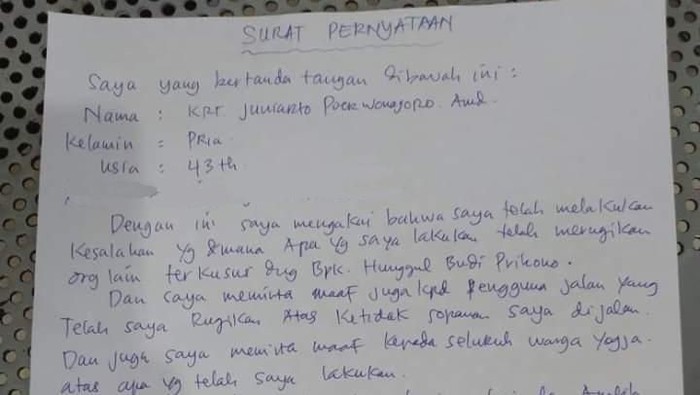 SURAT PERNYATAAN
Saya yang bertanda tangan dibawah ini :
Nama : KRT Junianto Poerwonagoro. Amd.
Kelamin = PRIa.
Usia : 43 th
Dengan ini saya mengakui bahwa saya telah melakukan
Kesalahan yg dmana Apa yg saya lakukan telah merugikan
org lain terkusus dng Bpk. Hunggul Budi Prihono.
Dan saya meminta maaf juga kpd Pengguna jalan yang
Telah saya Rugikan Atas Ketidak sopanan saya dijalan.
Dan juga saya meminta maaf kepada seluruh warga Yogja.
atas apa yg telah saya lakukan.